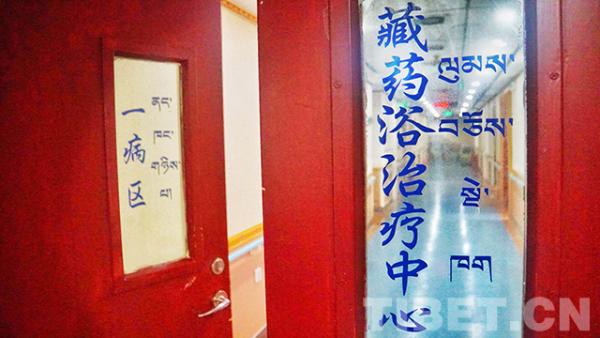 一病区
ནང་ཁང་གཉིས་པ།
藏药浴治疗中心
ལུམས་བཅོས་སྡེ་ཁག
TIBET.CN